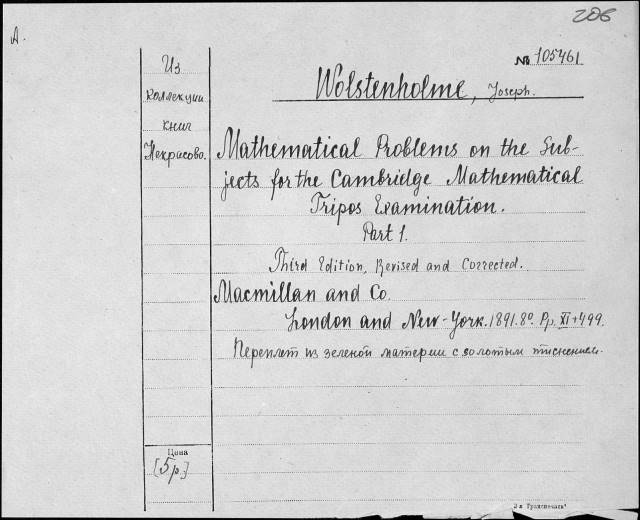 206
A.
№ 105461
Из
коллекции
книг
Некрасово.
Wolstenholme, Joseph.
Mathematical Problems on the Sub-
jects for the Cambridge Mathematical
Tripos Examination.
Part 1.
Third Edition, Revised and Corrected.
Macmillan and Co.
London and New-York. 1891. 8º. Pp. XI+499.
Переплет из зеленой материи с золотым тиснением.
Цена
[5р.]